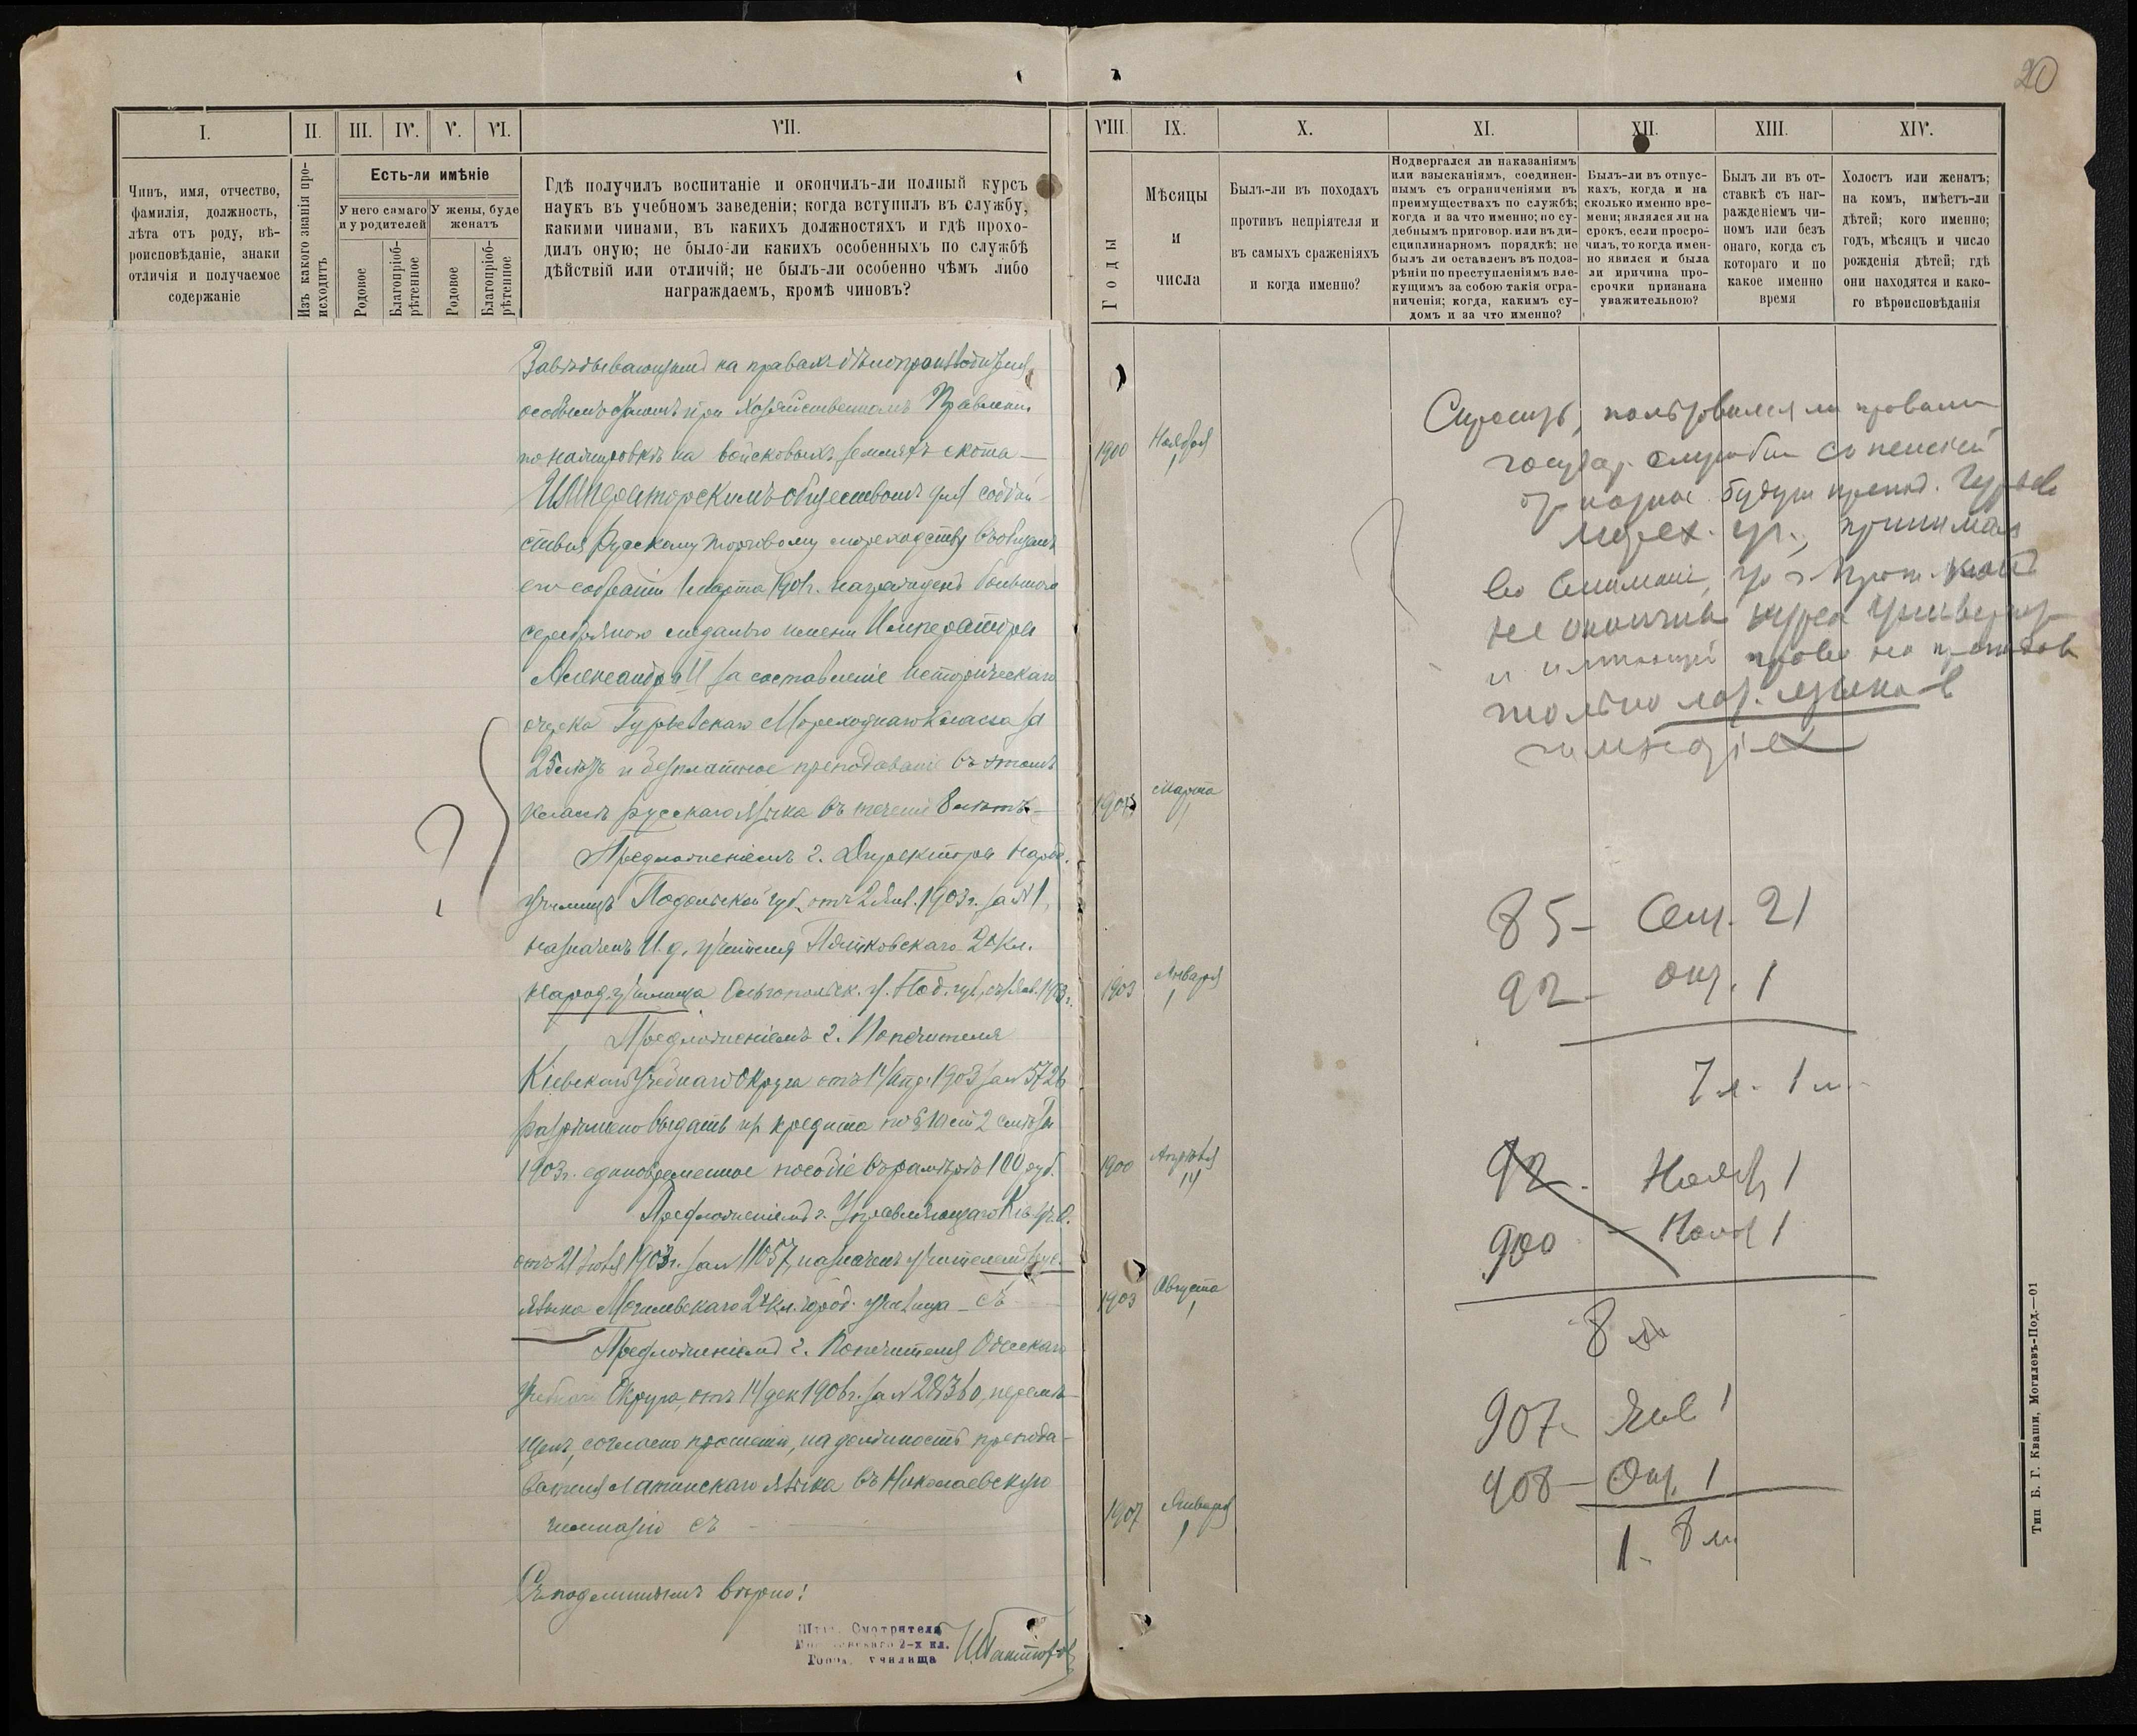 20
I.
II.
III.
IV.
V.
VI.
VII.
VIII.
IX.
X.
XI.
XII.
XIII.
XIV.
Чинъ, имя, отчество,
фамилія, должность,
лѣта отъ роду, вѣ-
роисповѣданіе, знаки
отличія и получаемое
содержаніе
Изъ какого званія про-
исходитъ
Есть-ли имѣніе
У него самаго
и у родителей
У жены, буде
женатъ
Родовое
Благопріоб-
рѣтенное
Родовое
Благопріоб-
рѣтенное
Гдѣ получилъ воспитаніе и окончилъ-ли полный курсъ
наукъ въ учебномъ заведеніи; когда вступилъ въ службу,
какими чинами, въ какихъ должностяхъ и гдѣ прохо-
дилъ оную; не было-ли какихъ особенныхъ по службѣ
дѣйствій или отличій; не былъ-ли особенно чѣмъ либо
награждаемъ, кромѣ чиновъ?
Годы
Мѣсяцы
и
числа
Былъ-ли въ походахъ
противъ непріятеля и
въ самыхъ сраженіяхъ
и когда именно?
Подвергался ли наказаніямъ
или взысканіямъ, соединен-
нымъ съ ограниченіями въ
преимуществахъ по службѣ;
когда и за что именно; по су-
дебнымъ приговор. или въ ди-
сциплинарномъ порядкѣ; не
былъ ли оставленъ въ подоз-
рѣніи по преступленіямъ вле-
кущимъ за собою такія огра-
ниченія; когда, какимъ су-
домъ и за что именно?
Былъ-ли въ отпус-
кахъ, когда и на
сколько именно вре-
мени; являлся ли на
срокъ, если просро-
чилъ, то когда имен-
но явился и была
ли причина про-
срочки признана
уважительною?
Былъ ли въ от-
ставкѣ съ наг-
ражденіемъ чи-
номъ или безъ
онаго, когда съ
котораго и по
какое именно
время
Холостъ или женатъ;
на комъ, имѣетъ-ли
дѣтей; кого именно;
годъ, мѣсяцъ и число
рожденія дѣтей; гдѣ
они находятся и како-
го вѣроисповѣданія
Завѣдывающимъ на правахъ дѣлопроизводителя
особымъ столомъ при Хозяйственномъ Правленіи
по на войсковыхъ земляхъ скота
1900 Ноября 1
ИМПераторскимъ обществомъ для содѣй-
ствія Русскому торговому мореходству въ общемъ
его собраніи 1 марта 1901 г. награжденъ большою
серебряною медалью имени Императора
Александра II за составленіе историческаго
очерка Гурьевскаго Мореходнаго класса за
25 лѣтъ и безплатное преподаваніе въ этомъ
классѣ русскаго языка въ теченіи 8 лѣтъ
Марта 1
Предложеніемъ г. Директора народ.
училищъ Подольской губ. отъ 2 Янв. 1903 г. за № 1,
назначенъ И. д. учителя 2х кл.
народ. училища Ольгопольск. у. Под. губ. съ Янв. 1903 г.
1903 Января 1
Предложеніемъ г. Попечителя
Кіевскаго Учебнаго Округа отъ 14 Апр. 1903 за № 5726
разрѣшено выдать из кредита по § 10 ст 2 смѣты
1903 г. единовременное пособіе въ размѣрѣ 100 руб.
1900 Апрѣля 14
Предложеніемъ г. Управляющаго Кіев. Уч. О.
отъ 21 Іюля 1903 г. за № 11057, назначенъ учителемъ рус.
языка Могилевскаго 2х кл. город. училища съ
1903 Августа 1
Предложеніемъ г. Попечителя Одесскаго
Учебнаго Округа, отъ 14 дек 1906 г. за № 28360, перемѣ-
щенъ, согласно прошенію, на должность препода-
вателя Латинскаго языка въ Николаевскую
гимназію съ
1907 Января 1
Съ подлиннымъ вѣрно!
Смотрителя
2-х кл.
училища
пользовался ли правами
государ. службы съ пенсіей
преп. Гурьев
Морех. принимая
во вниманіе, что
не окончивъ курса университ.
и имѣющій право на преподав.
только лат. языка въ
гимназіях
85 - Сент. 21
92 - Окт. 1
7 л. 1 м.
92 - Нояб 1
900 - Нояб 1
8 л
907 - Янв 1
908 - Окт. 1
1 - 8 м
Тип Б. Г. Кваши, Могилевъ-Под.—01